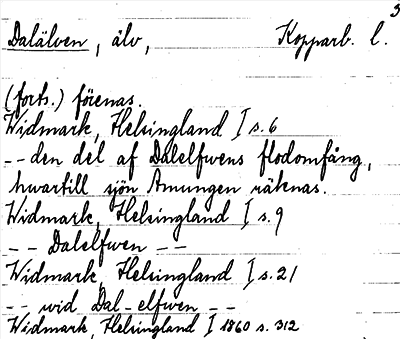 3
Dalälven, älv, Kopparb. l.
(forts.) förenas.
Widmark, Helsingland I s. 6
-- den del af Dalelfwens flodomfång,
hwartill sjön Amungen räknas.
Widmark, Helsingland I s. 9
-- Dalelfwen --
Widmark, Helsingland I s. 21
-- wid Dal-elfwen --
Widmark, Helsingland I 1860 s. 312